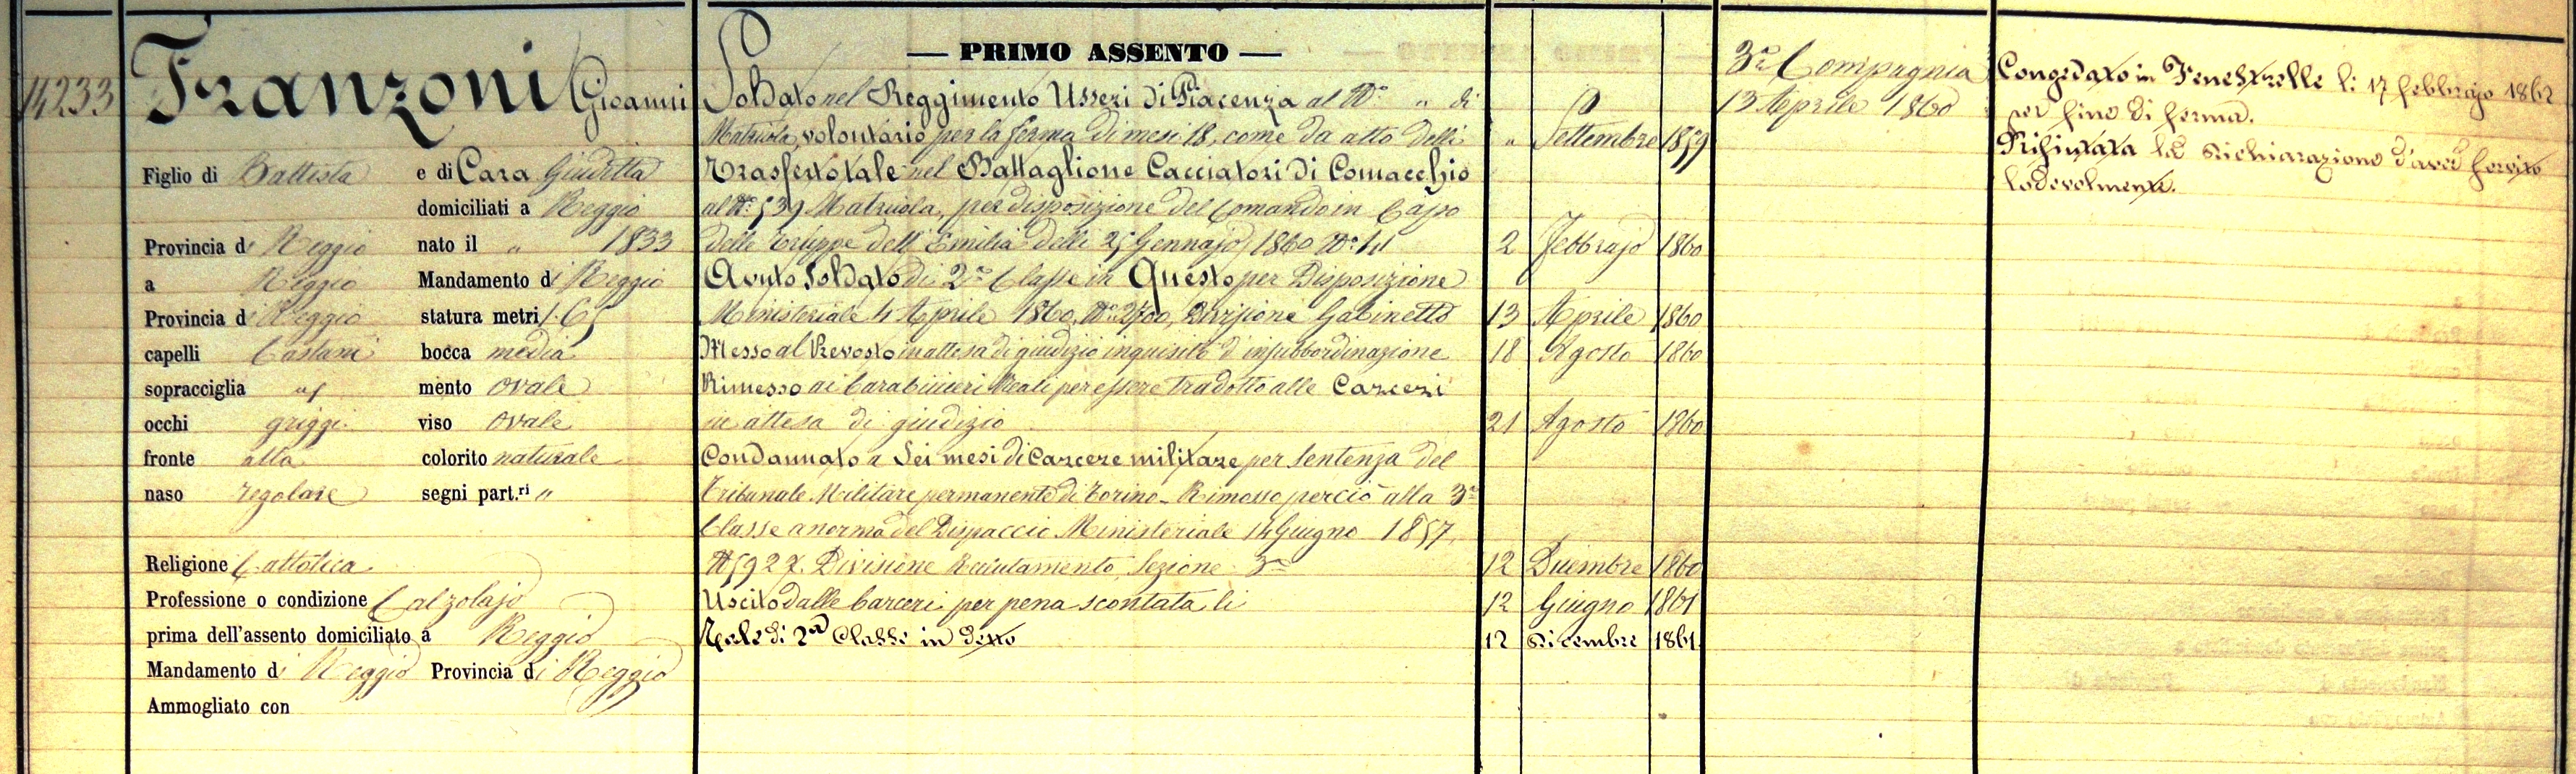 14233
Franzoni Giovanni
Figlio di Battista e di Cara Giuditta
domiciliati a Reggio
Provincia di Reggio nato il " 1833
a Reggio Mandamento di Reggio
Provincia di Reggio statura metri 1.65
capelli Castani bocca media
sopracciglia mento ovale
occhi griggi viso ovale
fronte alta colorito naturale
naso regolare segni part.ri "
Religione Cattolica
Professione o condizione Calzolajo
prima dell'assento domiciliato a Reggio
Mandamento di Reggio Provincia di Reggio
Ammogliato con
— PRIMO ASSENTO —
Soldato nel Reggimento Usseri di Piacenza al No " di
Matricola, volontario per la ferma di mesi 18, come da atto delli " Settembre 1859
Trasferto tale nel Battaglione Cacciatori di Comacchio
al No 539 Matricola, per disposizione del Comando in Capo
delle Truppe dell'Emilia delli 25 Gennajo 1860 No 41 2 Febbrajo 1860
Avuto Soldato di 2a Classe in Questo per Disposizione
Ministeriale 4 Aprile 1860, No 2700, Divisione Gabinetto 13 Aprile 1860
Messo al Prevosto in attesa di giudizio inquisito d'insubbordinazione 18 Agosto 1860
Rimesso ai Carabinieri Reali per essere tradotto alle Carceri
in attesa di giudizio 21 Agosto 1860
Condannato a Sei mesi di Carcere militare per Sentenza del
Tribunale Militare permanente di Torino - Rimosso perciò alla 3a
Classe a norma del Dispaccio Ministeriale 14 Giugno 1857,
No 5927. Divisione Reclutamento, Sezione 3a 12 Dicembre 1860
Uscito dalle Carceri per pena scontata li 12 Giugno 1861
Tale di 2a Classe in detto 12 Dicembre 1861
3a Compagnia
13 Aprile 1860
Congedato in Fenestrelle li 17 febbrajo 1862
per fine di ferma.
Rifiutata la dichiarazione d'aver servito
lodevolmente.